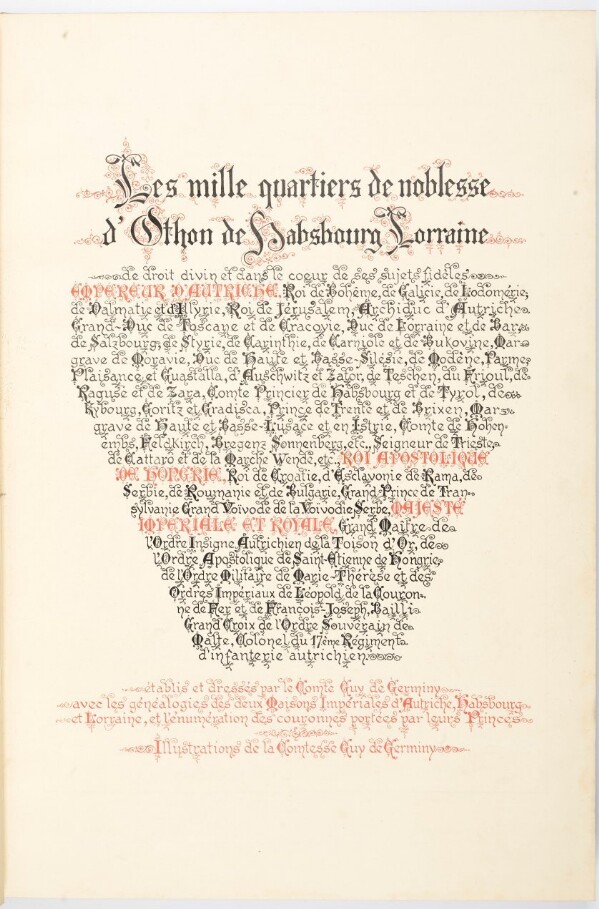 Les mille quartiers de noblesse
d'Othon de Habsbourg Lorraine
de droit divin et dans le coeur de ses sujets fidèles
EMPEREUR D'AUTRICHE, Roi de Bohême, de Galicie, de Lodomérie,
de Dalmatie et d'Illyrie, Roi de Jérusalem, Archiduc d'Autriche
Grand-Duc de Toscane et de Cracovie, Duc de Lorraine et de Bar,
de Salzbourg, de Styrie, de Carinthie, de Carniole et de Bukovine, Mar-
grave de Moravie, Duc de Haute et Basse-Silésie, de Modène, Parme
Plaisance et Guastalla, d'Auschwitz et Zator, de Teschen, du Frioul, de
Raguse et de Zara, Comte Princier de Habsbourg et de Tyrol, de
Kybourg, Goritz et Gradisca, Prince de Trente et de Brixen, Mar-
grave de Haute et Basse-Lusace et en Istrie, Comte de Hohen-
embs, Feldkirch, Bregenz Sonnenberg, etc., Seigneur de Trieste
de Cattaro et de la Marche Wende, etc., ROI APOSTOLIQUE
DE HONGRIE, Roi de Croatie, d'Esclavonie de Rama, de
Serbie, de Roumanie et de Bulgarie, Grand-Prince de Tran-
sylvanie Grand Voïvode de la Voïvodie Serbe, MAJESTE
IMPERIALE ET ROYALE, Grand Maître de
l'Ordre Insigne Autrichien de la Toison d'Or, de
l'Ordre Apostolique de Saint-Etienne de Hongrie
de l'Ordre Militaire de Marie-Thérèse et des
Ordres Impériaux de Léopold, de la Couron-
ne de Fer et de François-Joseph, Bailli
Grand Croix de l'Ordre Souverain de
Malte, Colonel du 17ème Régiment
d'infanterie autrichien
établis et dressés par le Comte Guy de Germiny
avec les généalogies des deux Maisons Impériales d'Autriche, Habsbourg
et Lorraine, et l'énumération des couronnes portées par leurs Princes
Illustrations de la Comtesse Guy de Germiny